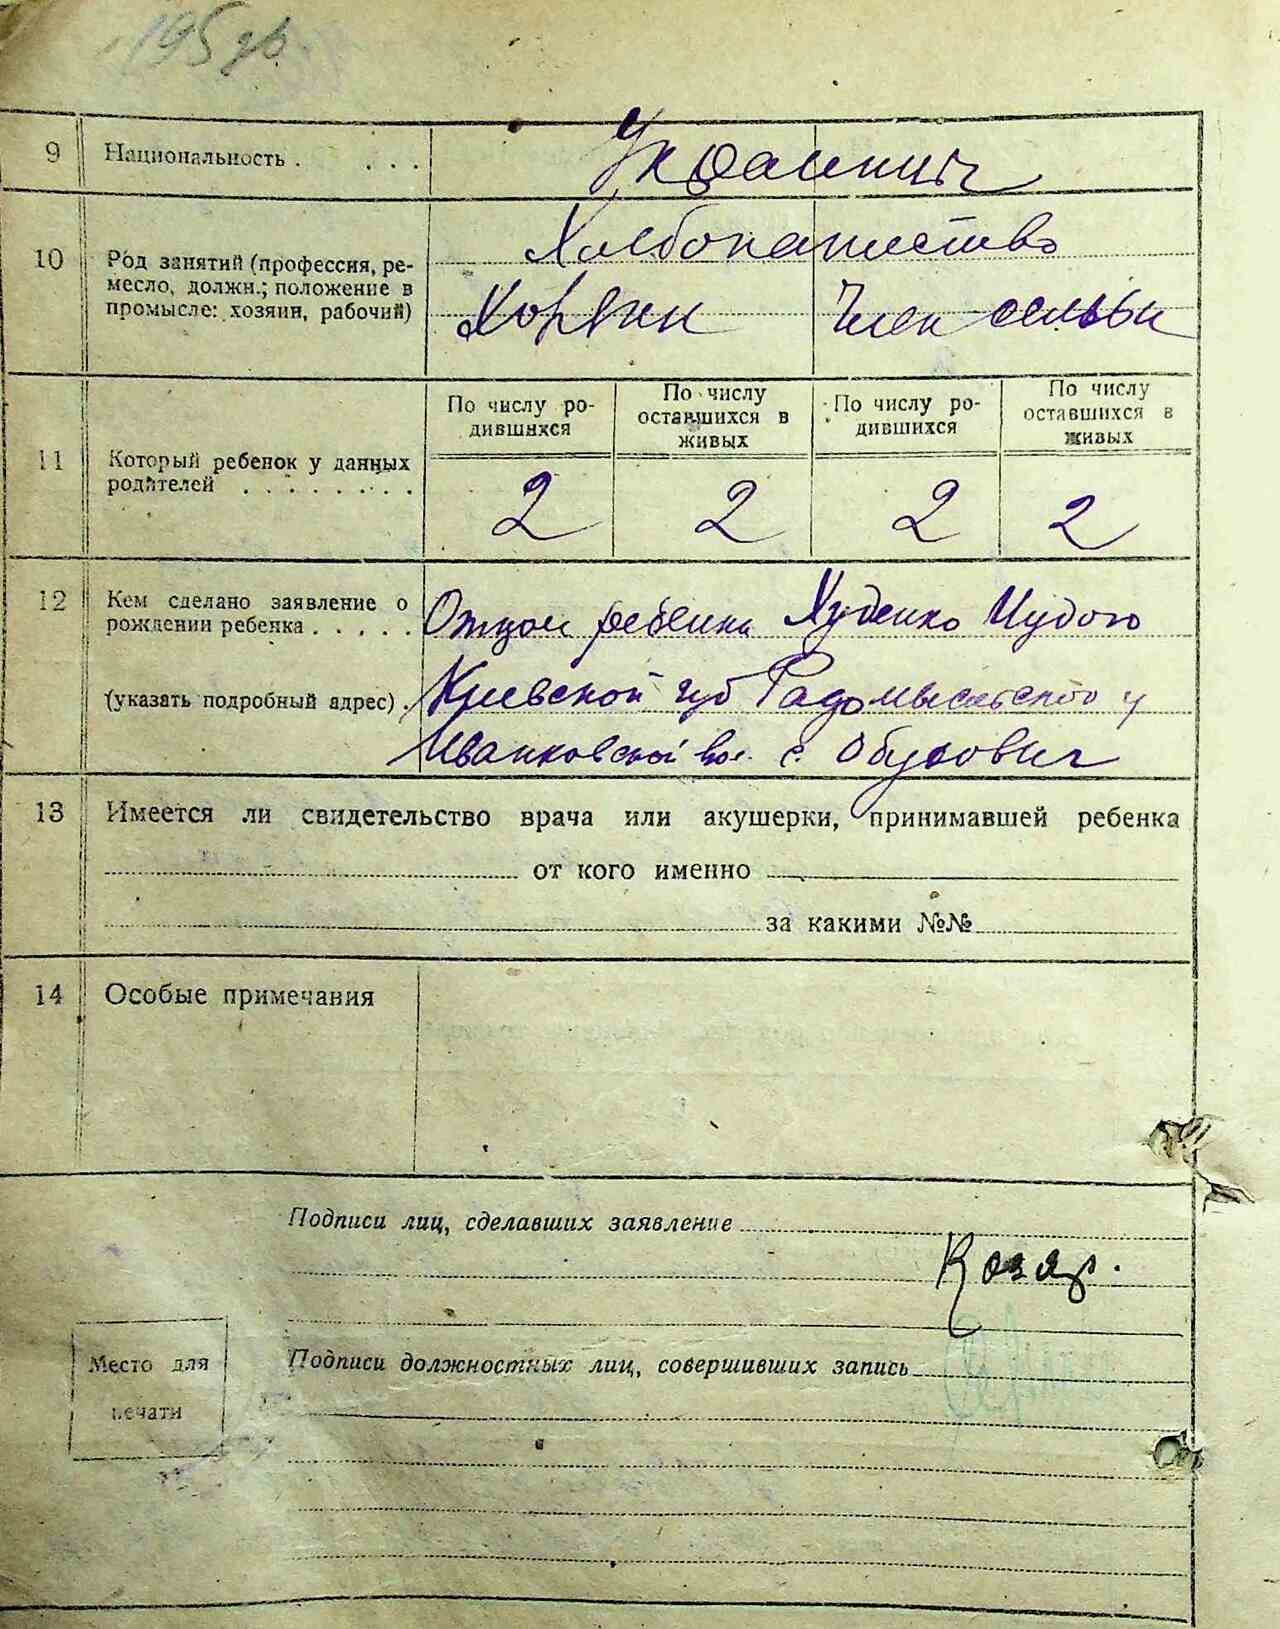 195 зв.
9 Национальность . . . . Украинци
10 Род занятий (профессия, ре-
месло, должн.; положение в
промысле: хозяин, рабочий)
Хлебопашество
Член семьи
11 Который ребенок у данных
родителей . . . . . . . .
По числу ро-
дившихся
По числу
оставшихся в
живых
По числу ро-
дившихся
По числу
оставшихся в
живых
2 2 2 2
12 Кем сделано заявление о
рождении ребенка . . . . .
(указать подробный адрес) .
Отцом ребенка Худенко
Киевской губ Радомысльского у
Иванковской вол. с. Обуховичи
13 Имеется ли свидетельство врача или акушерки, принимавшей ребенка
от кого именно
за какими №№
14 Особые примечания
Подписи лиц, сделавших заявление
Козяр.
Подписи должностных лиц, совершивших запись
Место для
печати